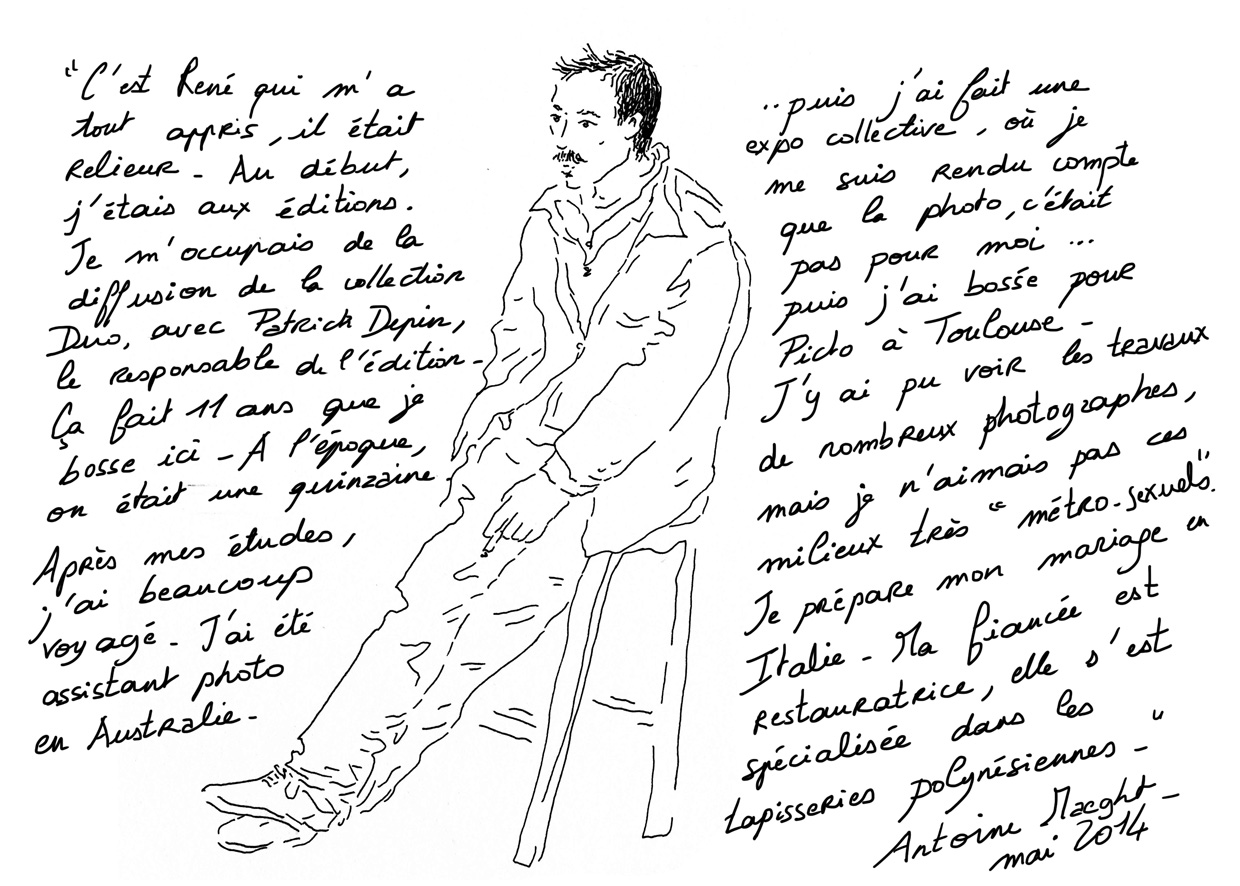 "C'est René qui m'a
tout appris, il était
relieur - Au début,
j'étais aux éditions.
Je m'occupais de la
diffusion de la collection
Duo, avec Patrick Depin,
le responsable de l'édition -
Ça fait 11 ans que je
bosse ici - A l'époque,
on était une quinzaine.
Après mes études,
j'ai beaucoup
voyagé - J'ai été
assistant photo
en Australie -
..puis j'ai fait une
expo collective, où je
me suis rendu compte
que la photo, c'était
pas pour moi ...
puis j'ai bossé pour
Picto à Toulouse -
J'y ai pu voir les travaux
de nombreux photographes,
mais je n'aimais pas ces
milieux très "métro-sexuels".
Je prépare mon mariage en
Italie - Ma fiancée est
restauratrice, elle s'est
spécialisée dans les
tapisseries polynésiennes - "
Antoine Maeght -
mai 2014